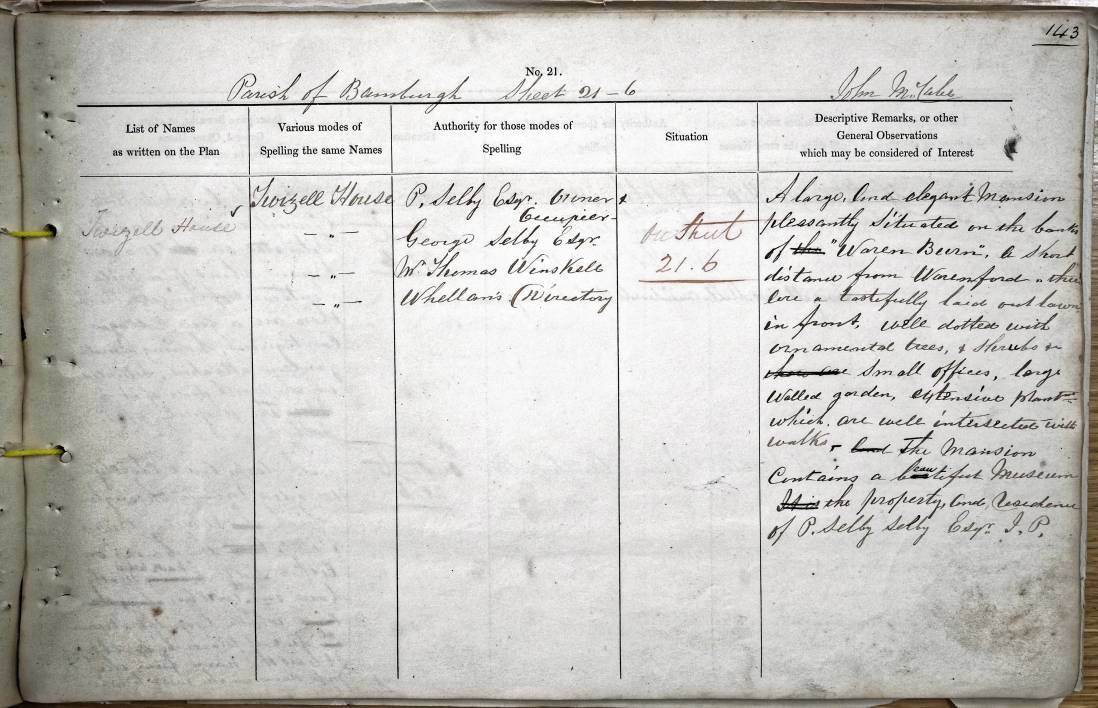 143
No. 21.
Parish of Bamburgh Sheet 21-6 John McCabe
List of Names
as written on the Plan
Various modes of
Spelling the same Names
Authority for those modes of
Spelling
Situation
Descriptive Remarks, or other
General Observations
which may be considered of Interest
Twizell House
Twizell House
—〃—
—〃—
—〃—
P. Selby Esqr. Owner &
Occupier
George Selby Esqr.
Mr Thomas Winskell
Whellan's Directory
On Sheet
21.6
A large, and elegant Mansion
pleasantly Situated on the banks
of the "Waren Burn", a short
distance from Warenford
are a tastefully laid out lawn
in front, well dotted with
ornamental trees, & Shrubs
Small offices, large
Walled garden, extensive plantns
which are well intersected with
walks, and The Mansion
Contains a beautiful Museum
It is the property, and, residence
of P. Selby Selby Esqr. J. P.